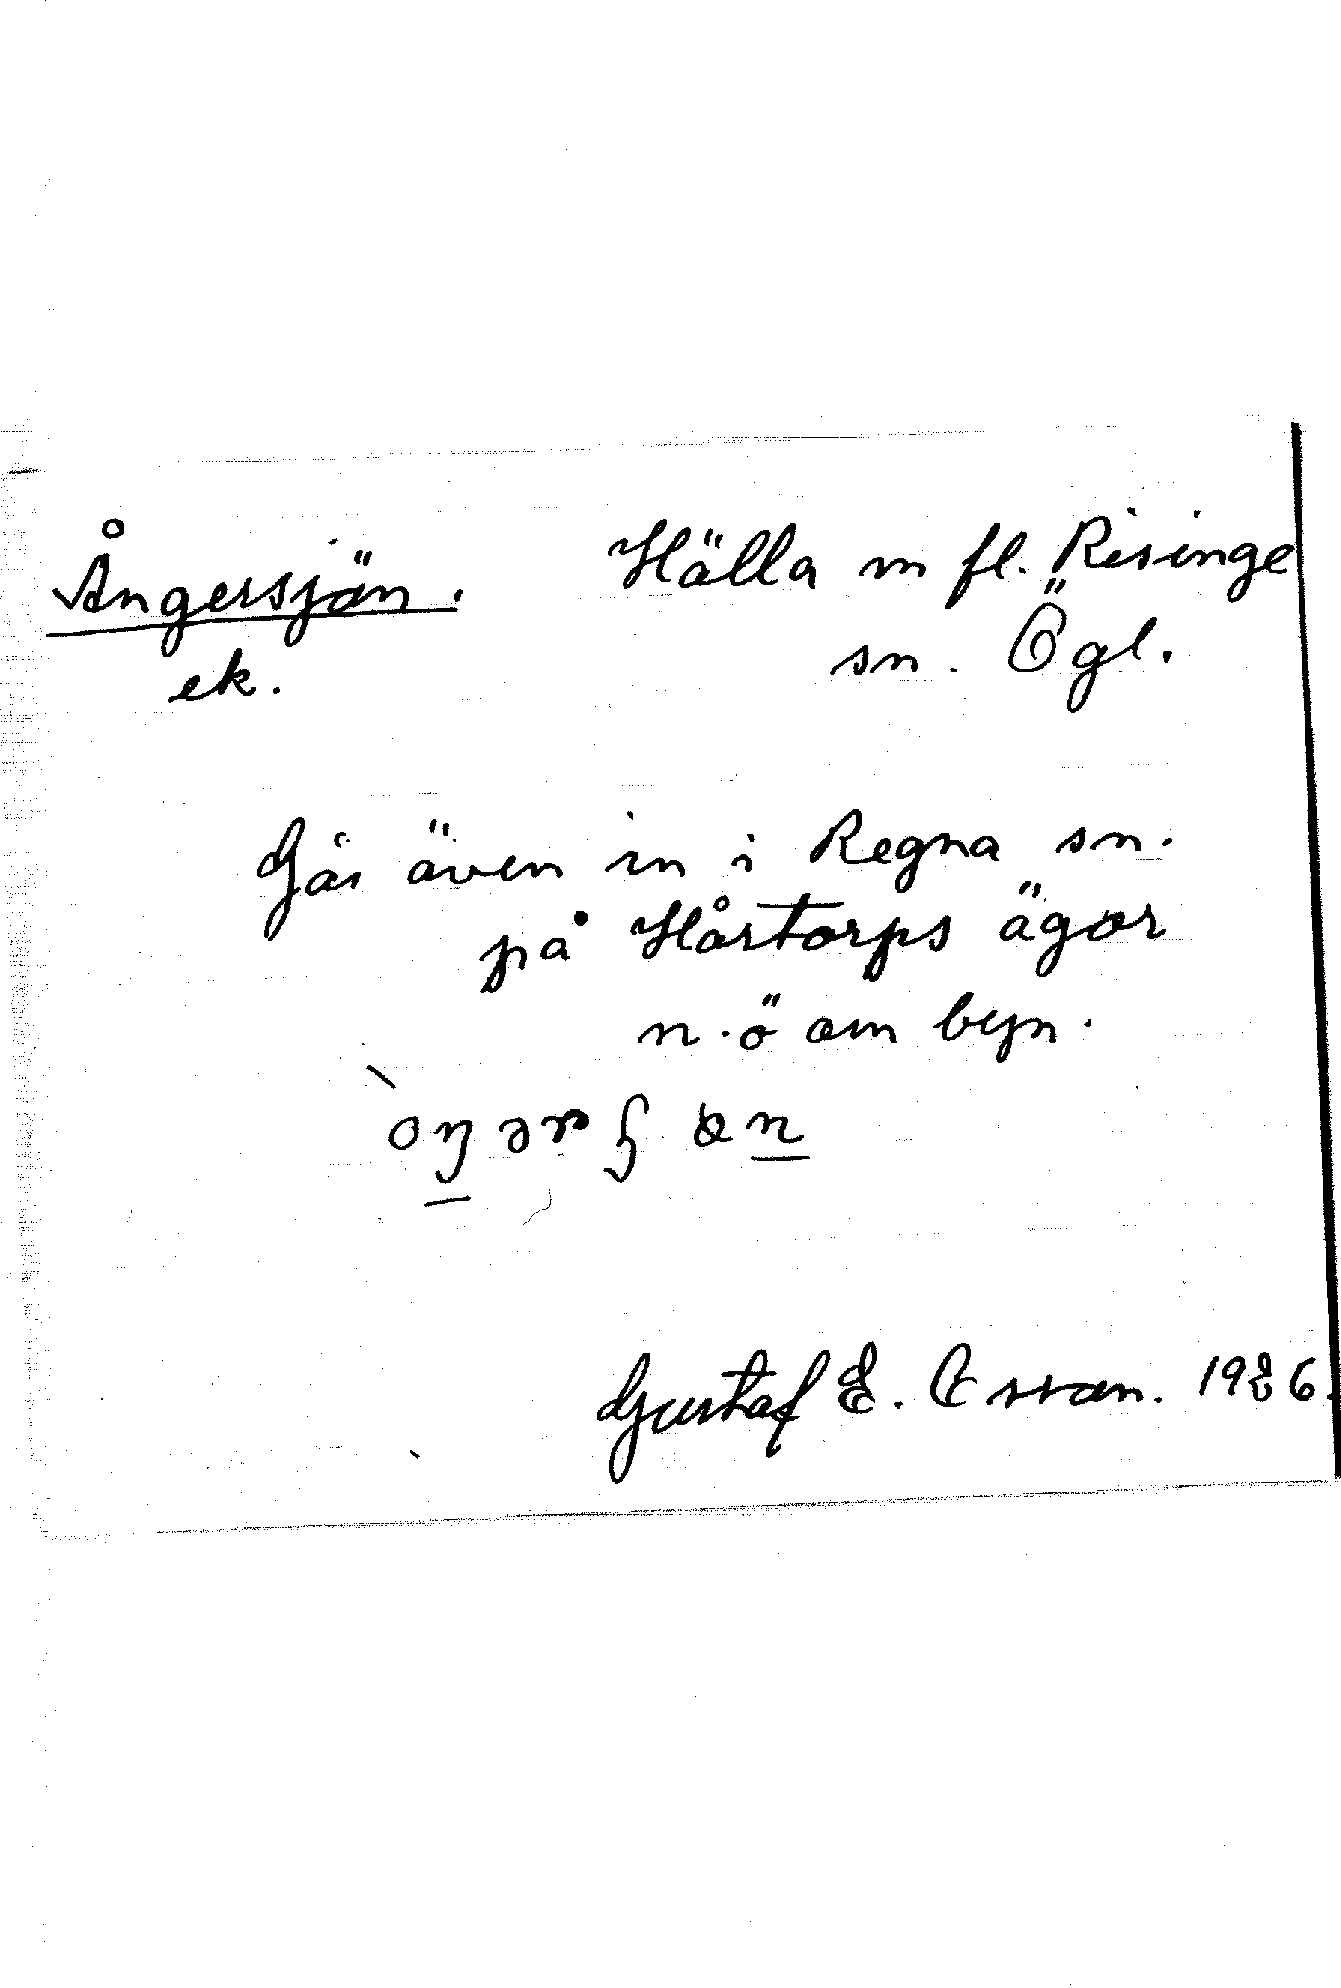 Ångersjön. Hälla m fl. Risinge
ek. sn. Ögl.
Går även in i Regna sn.
på Hårtorps ägor
n.ö om byn.
Gustaf E. 1926.